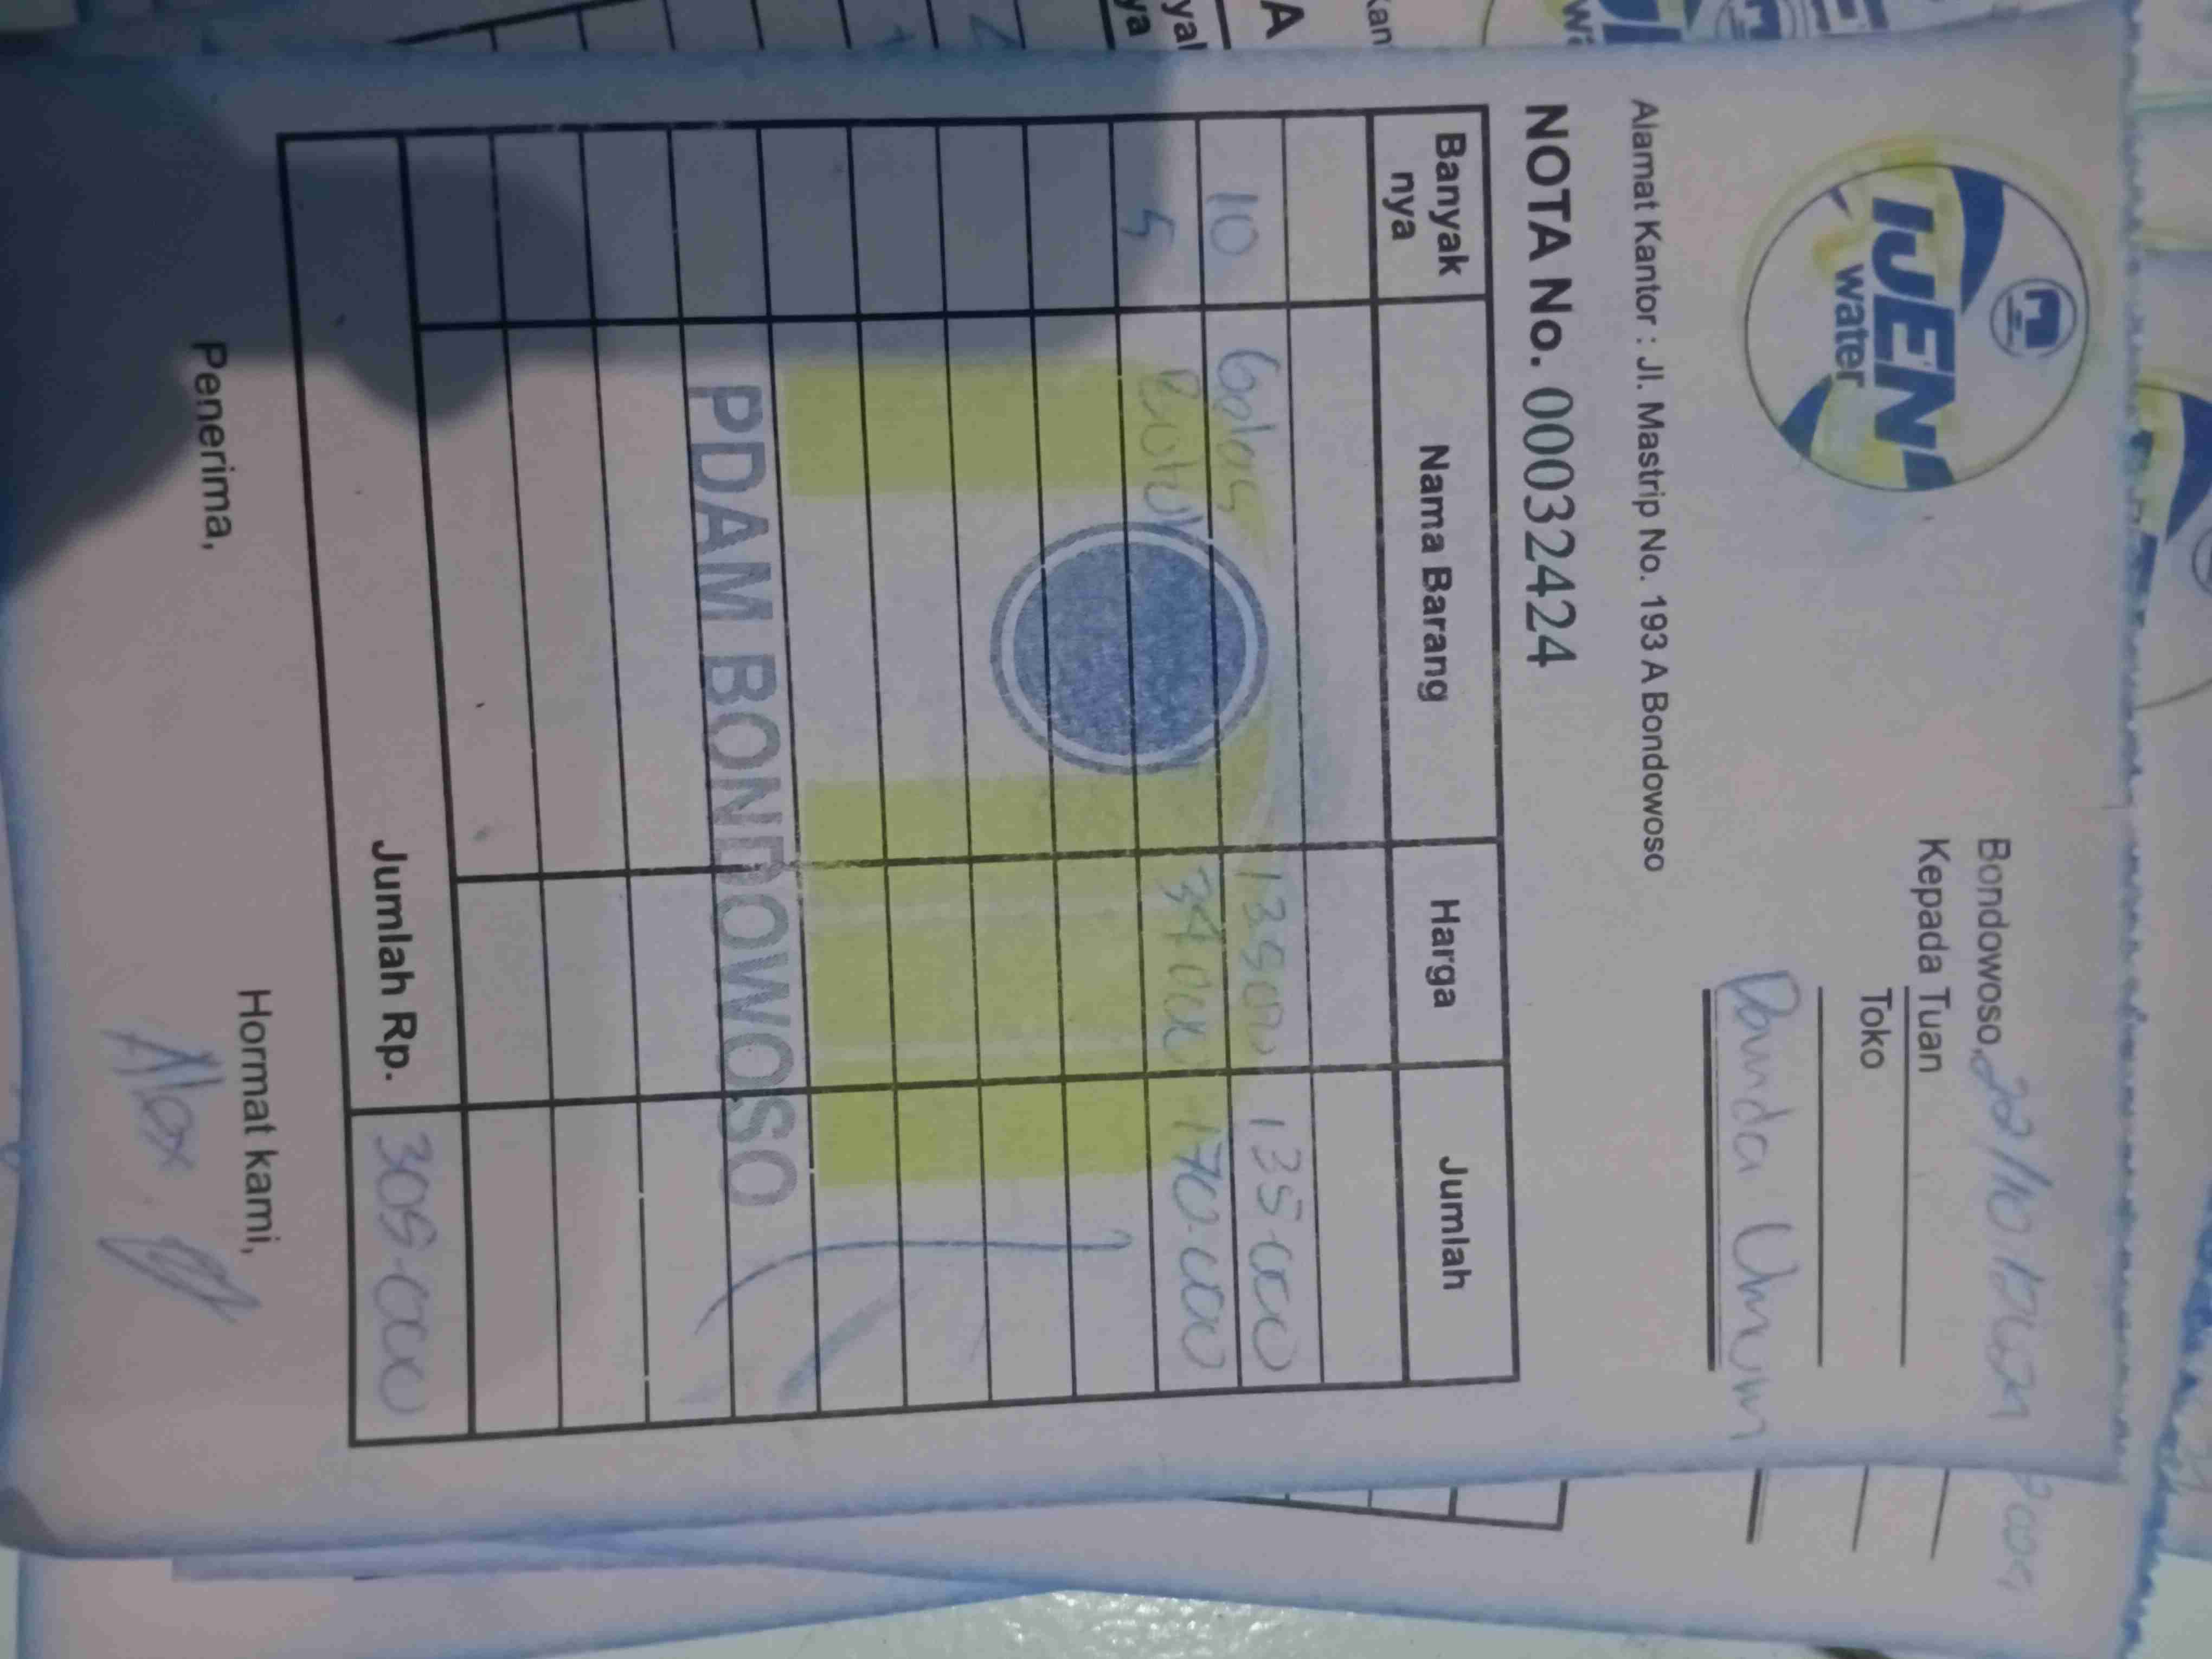 IJEN
water
Bondowoso, 22/10
Kepada Tuan
Toko
Alamat Kantor : Jl. Mastrip No. 193 A Bondowoso
NOTA No. 00032424
Banyak nya Nama Barang Harga Jumlah
10 Gelas 13500 135.000
5 Botol 34000 170.000
PDAM BONDOWOSO
Jumlah Rp. 305.000
Penerima, Hormat kami,
Alex